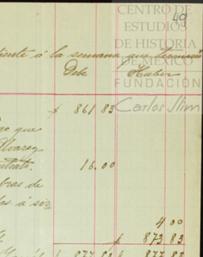 CENTRO DE
ESTUDIOS
DE HISTORIA
DE MÉXICO
FUNDACIÓN
Carlos Slim
49
á la semana que
Debe Haber
$ 861 83
que
Alvarez
16.00
de
á
4 00
$ 873 83
$ 877 83 $ 877 83